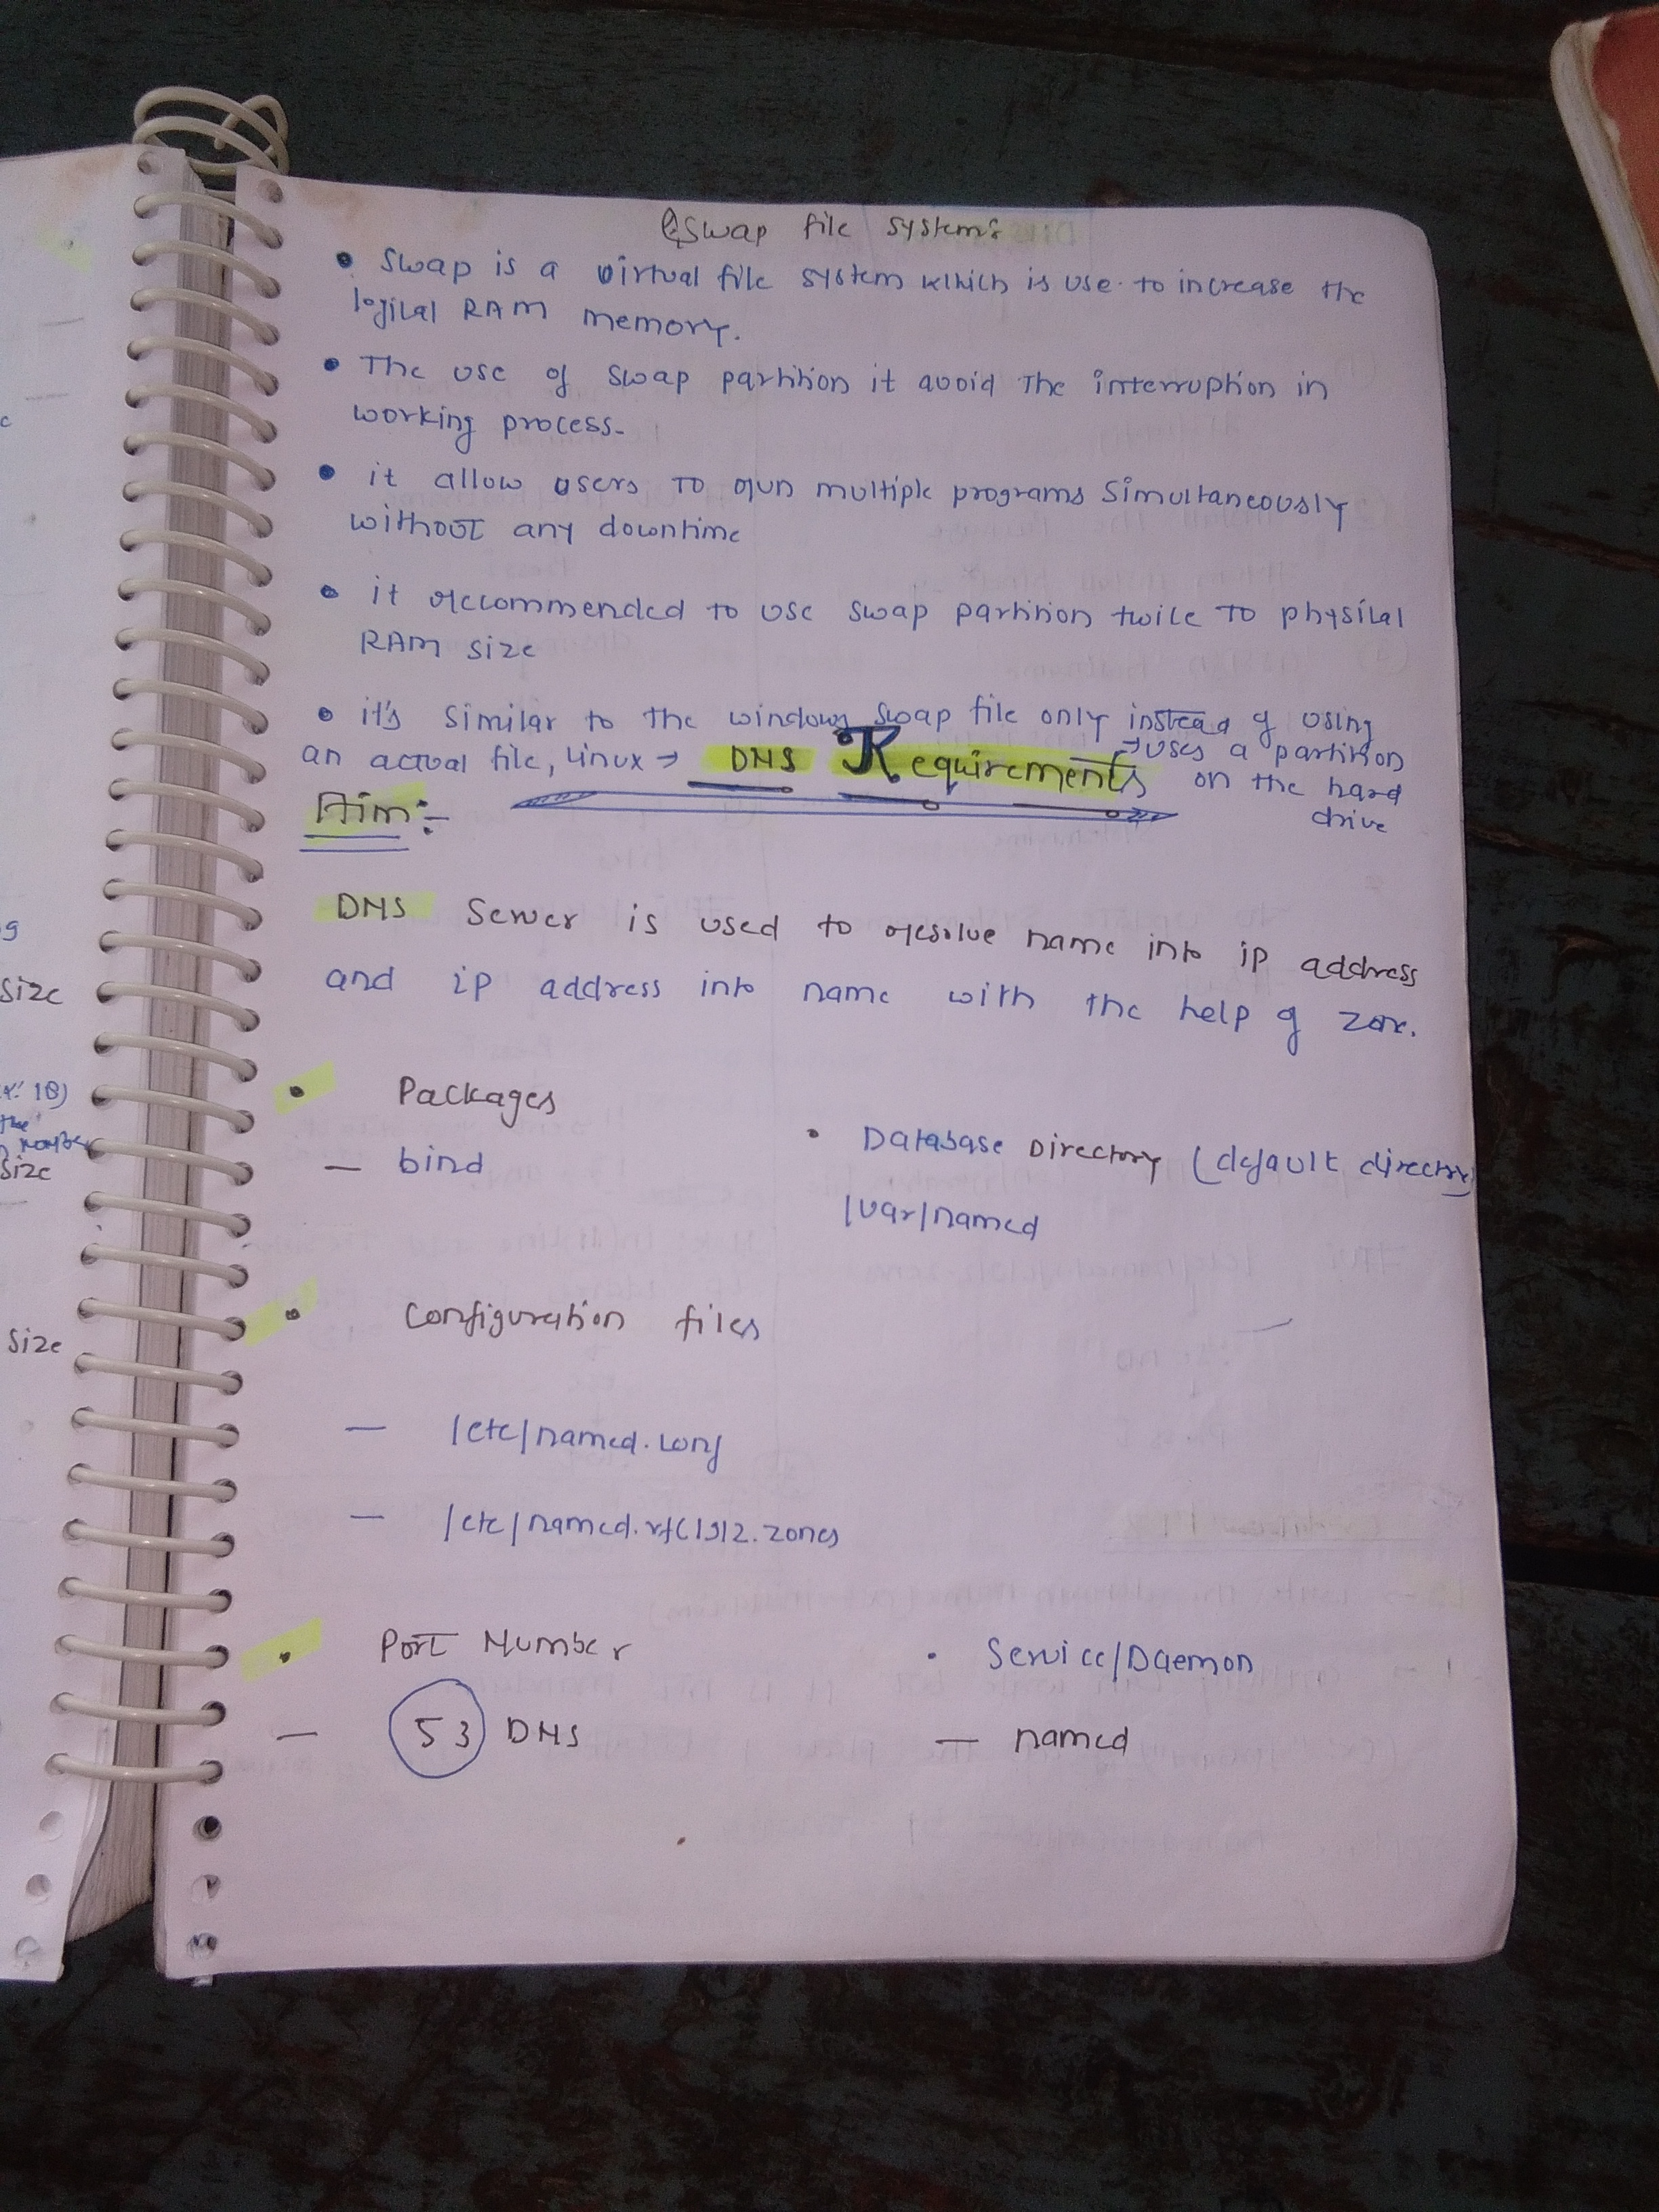 Q Swap file system:
• Swap is a virtual file system which is use to increase the
logical RAM memory.
• The use of swap partition it avoid The interruption in
working process.
• it allow users To run multiple programs Simultaneously
without any downtime
• it recommended to use swap partition twice To physical
RAM size
• it's similar to the windows swap file only instead of using
an actual file, Linux → → uses a partition
on the hard
drive
DNS Requirements
Aim:-
DNS Server is used to resolve name into ip address
and ip address into name with the help of zone.
• Packages
— bind
• Database Directory (default directory)
/var/named
• Configuration files
— /etc/named.conf
— /etc/named.rfc1912.zones
• Port Number
— 53 DNS
• Service/Daemon
— named
size
size
size